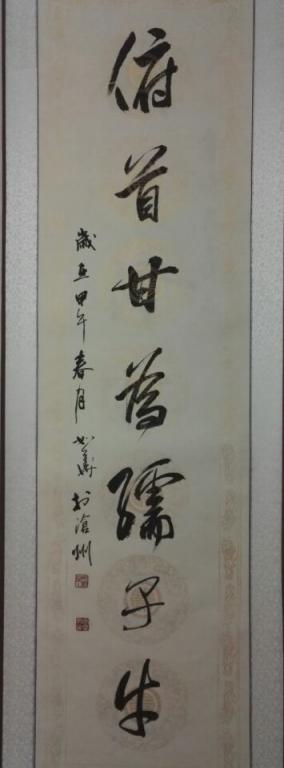 俯首甘为孺子牛
歲在甲午春月 於滄州